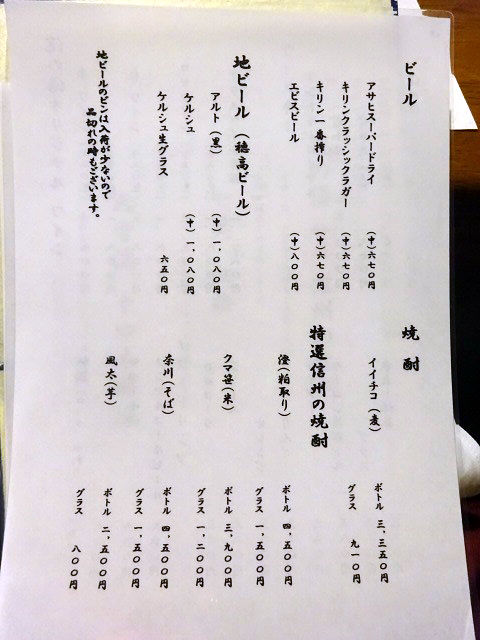 ビール
アサヒスーパードライ (中)六七〇円
キリンクラッシックラガー (中)六七〇円
キリン一番搾り (中)六七〇円
エビスビール (中)八〇〇円
地ビール (穂高ビール)
アルト(黒) (中)一,〇八〇円
ケルシュ (中)一,〇八〇円
ケルシュ生グラス 六五〇円
地ビールのビンは入荷が少ないので
品切れの時もございます。
焼酎
イイチコ(麦) ボトル 三,三五〇円
グラス 九一〇円
特選信州の焼酎
澄(粕取り) ボトル 四,五〇〇円
グラス 一,五〇〇円
クマ笹(米) ボトル 三,九〇〇円
グラス 一,二〇〇円
奈川(そば) ボトル 四,五〇〇円
グラス 一,五〇〇円
風太(芋) ボトル 二,五〇〇円
グラス 八〇〇円